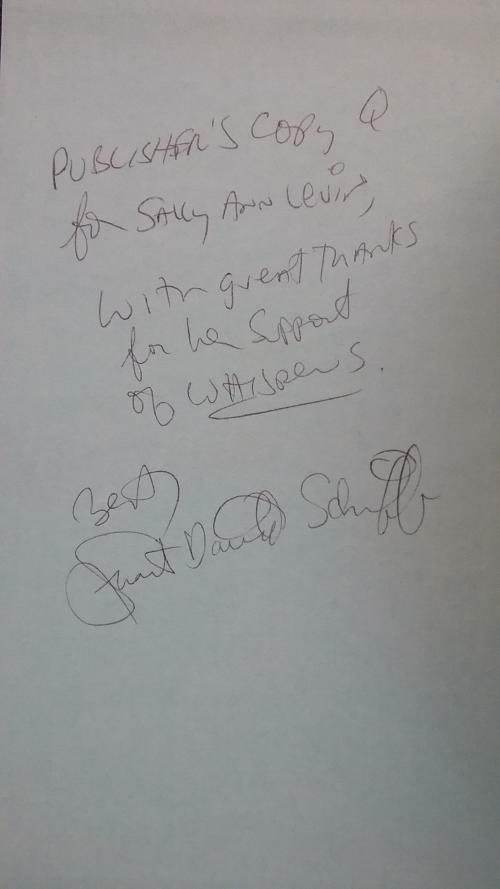 PUBLISHER'S COPY Q
for SALLY ANN Levin,
With great THANKS
for her support
of WHISPERS.
Best,
Stuart David Schiff